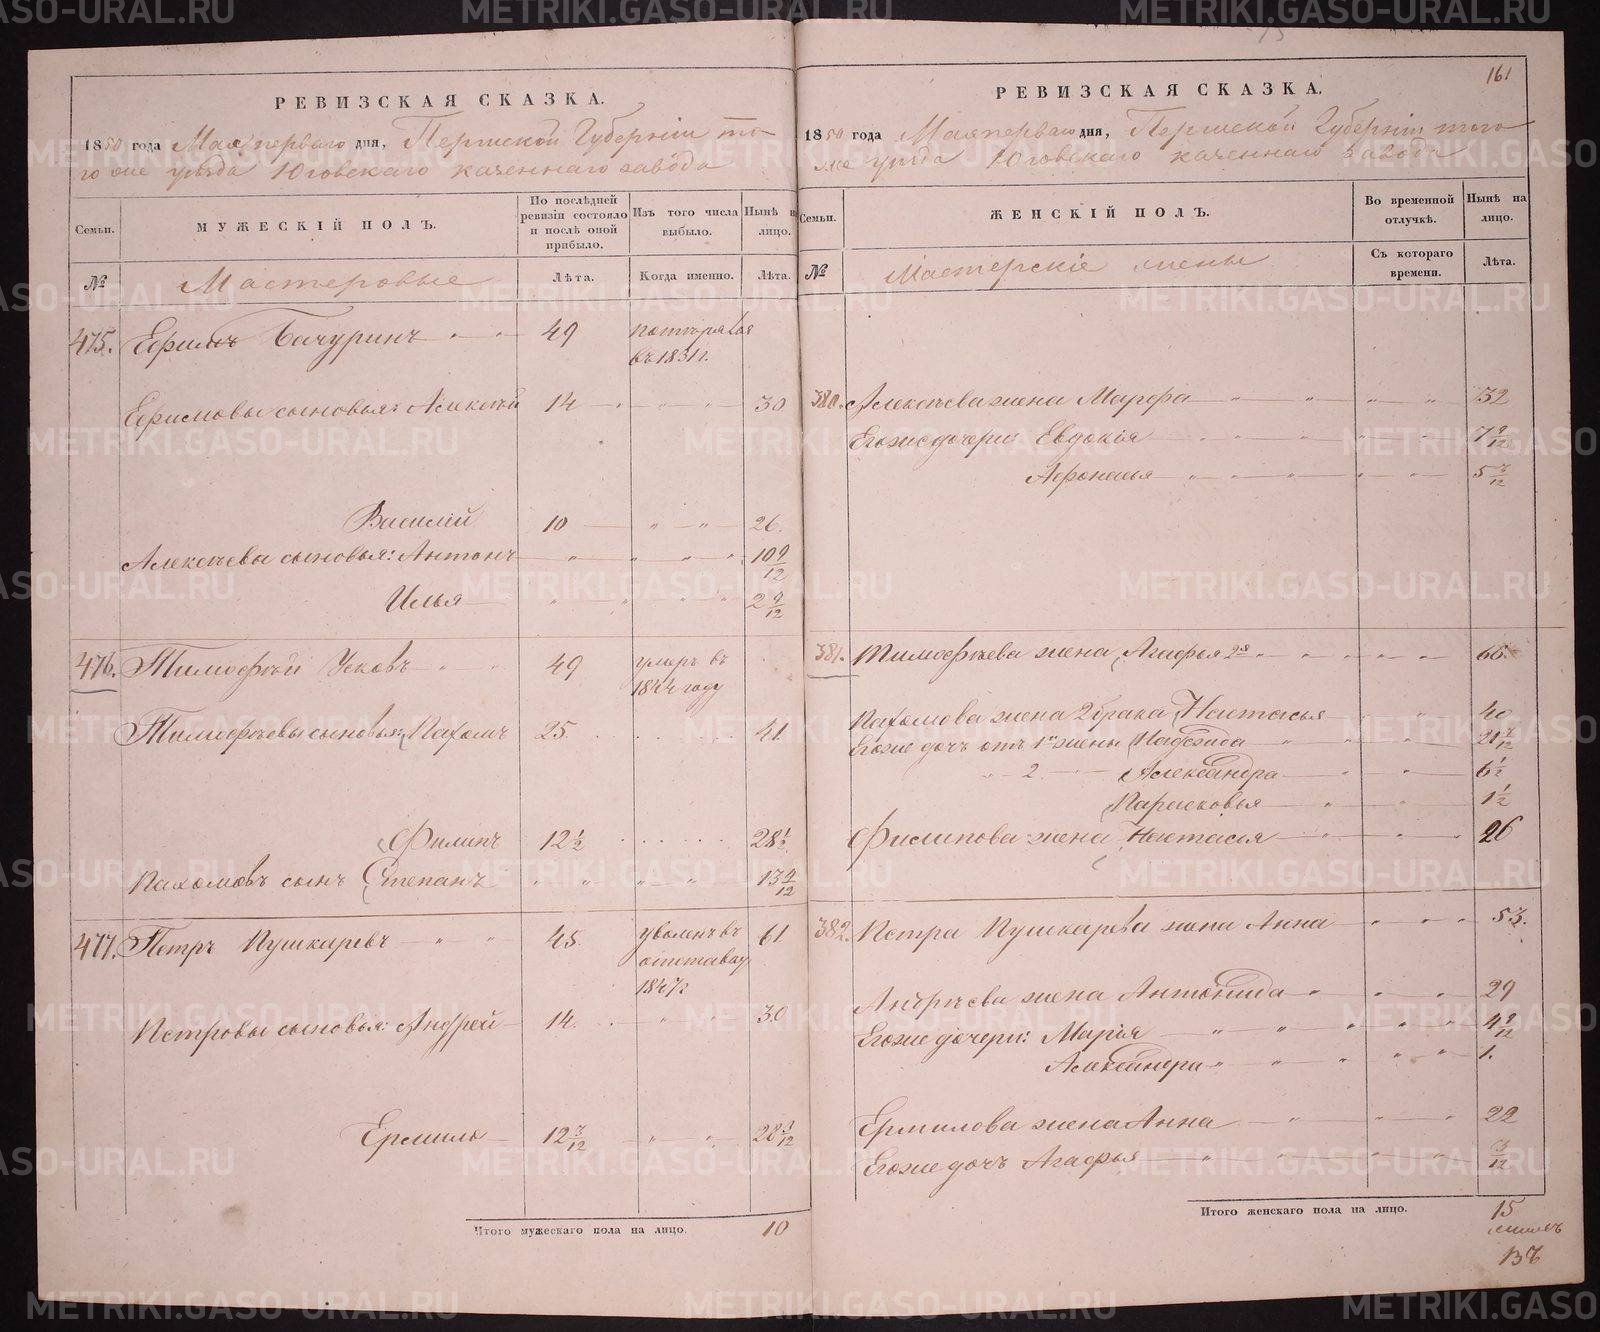 РЕВИЗСКАЯ СКАЗКА.
1850 года Мая перваго дня, Пермской Губернiи то-
го же уѣзда Юговскаго казеннаго завода
Семьи.
МУЖЕСКІЙ ПОЛЪ.
По послѣдней ревизіи состояло и послѣ оной прибыло.
Изъ того числа выбыло.
Нынѣ на лицо.
№
Мастеровые
Лѣта.
Когда именно.
Лѣта.
475. Ефимъ Бачуринъ " " 49
въ 1831 г.
Ефимовы сыновья: Алексѣй 14 " " 30
Василій 10 " " 26.
Алексѣевы сыновья: Антонъ " " " " 10 9/12
Илья " " " " 2 9/12
476. Тимофѣй Усковъ " " 49 умеръ въ
1844 году
Тимофѣевы сыновья: Пахомъ 25. 41.
Филипъ 12 1/2 28 1/2
Пахомовъ сынъ Степанъ " " " " 13 9/12
477. Петръ Пушкаревъ " " 45 уволенъ въ 61
отставку
1847 г.
Петровы сыновья: Андрей 14. " " 30
Ермило 12 7/12 " " 28 3/12
Итого мужескаго пола на лицо. 10
161
РЕВИЗСКАЯ СКАЗКА.
1850 года Мая перваго дня, Пермской Губернiи того
же уѣзда Юговскаго казеннаго завода
Семьи.
ЖЕНСКІЙ ПОЛЪ.
Во временной отлучкѣ.
Нынѣ на лицо.
№
Мастерскіе жены
Съ котораго времени.
Лѣта.
380. Алексѣева жена Марфа " " " " 32
Егоже дочери: Евдокія " " " " 7 9/12
Афонасья " " " " 5 7/12
381. Тимофѣева жена Агафья " " " " 66.
Пахомова жена 2 брака Настасья " 40
Егоже дочь отъ 1й жены Надежда " " " " 21 7/12
" 2. Александра " " 6 1/2
Парасковья " " 1 1/2
Филипова жена Настасья " " 26
382. Петра Пушкарева жена Анна " " " 53.
Андрѣева жена Антонида " " " 29
Егоже дочери: Марія " " " " " 4 9/12
Александра " " " " " 1.
Ермилова жена Анна " " " 22
Егоже дочь Агафья " " " " 3/12
Итого женскаго пола на лицо. 15
METRIKI.GASO-URAL.RU